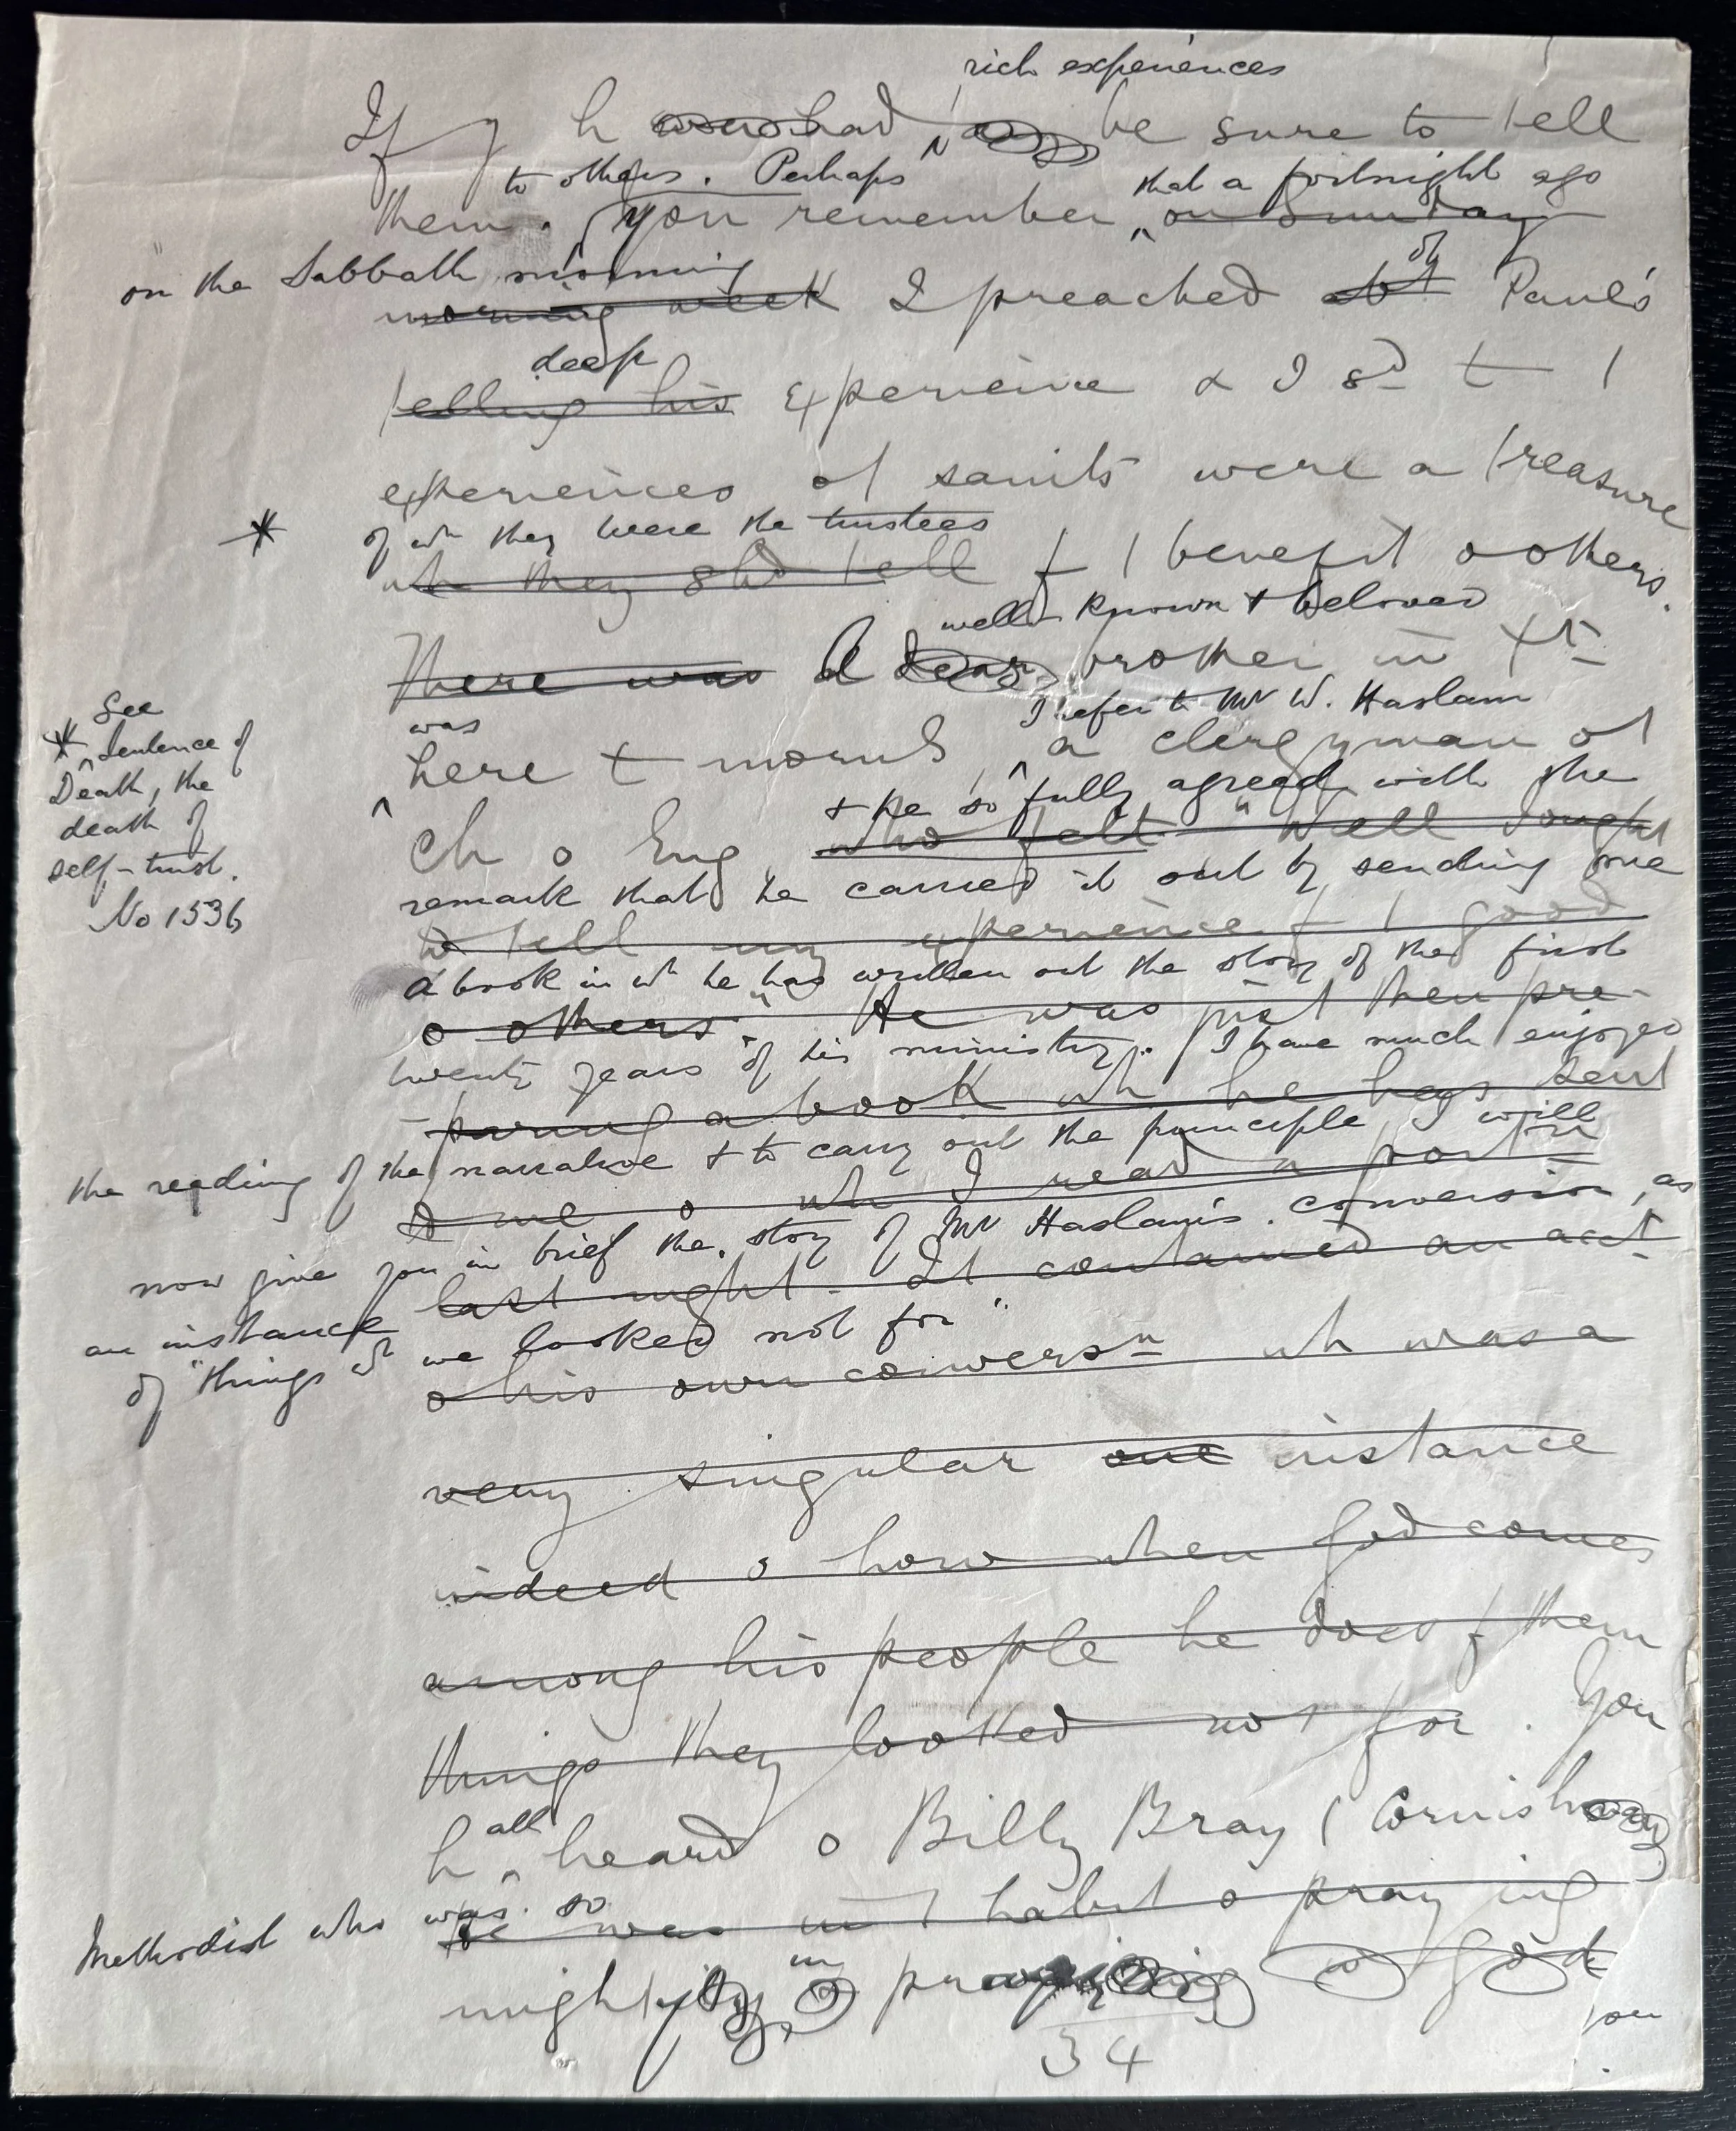 rich experiences
If y h had be sure to tell
to others. Perhaps that a fortnight ago
them. you remember on Sunday
on the Sabbath morning of
morning week I preached Paul's
deep
telling his experience & I sd t
experiences of saints were a treasure
* of wh they were the trustees
wh they shd tell f / benefit o others.
well known & beloved
There was A dear brother in Xt
was I refer to Mr W. Haslam
here t mornG, a clergyman of
& he so fully agreed with the
Ch o Eng who felt "Well I ought
remark that he carried it out by sending me
to tell my experience f / good
a book in wh he has written out the story of the first
o others." He was just then pre-
twenty years of his ministry. I have much enjoyed
-paring a book wh he has sent
the reading of the narrative & to carry out the principle I will
to me o wh I read a portn
now give you in brief the story of Mr Haslam's conversion, as
last night. It contained an acct
an instance
of "things wh we looked not for"
o his own conversn wh was a
very singular one instance
indeed o how when God comes
among his people he does f them
things they looked not for. You
all
h heard o Billy Bray / Cornish
Methodist who was so
he was in / habit o praying
in
mighty God
34
See
* Sentence of
Death, the
death of
self-trust.
No 1536